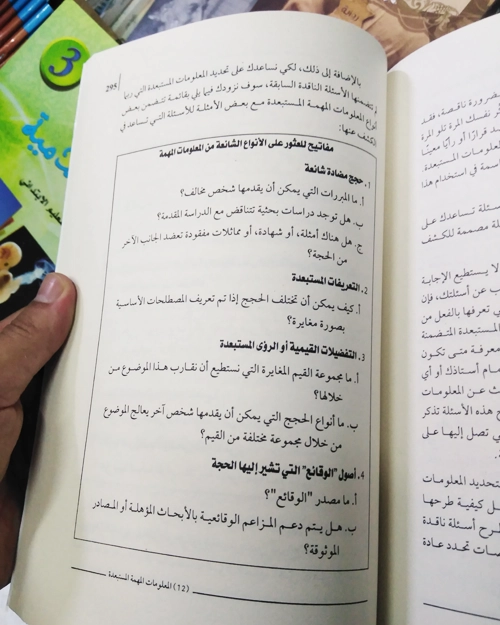 295
بالإضافة إلى ذلك، لكي نساعدك على تحديد المعلومات المستبعدة التي ربما
تتضمنها الأسئلة الناقدة السابقة، سوف نزودك فيما يلي بقائمة تتضمن بعض
أنواع المعلومات المهمة المستبعدة مع بعض الأمثلة للأسئلة التي تساعد في
الكشف عنها:
مفاتيح للعثور على الأنواع الشائعة من المعلومات المهمة
1. حجج مضادة شائعة
أ. ما المبررات التي يمكن أن يقدمها شخص مخالف؟
ب. هل توجد دراسات بحثية تتناقض مع الدراسة المقدمة؟
ج. هل هناك أمثلة، أو شهادة، أو مماثلات مفقودة تعضد الجانب الآخر
من الحجة؟
2. التعريفات المستبعدة
أ. كيف يمكن أن تختلف الحجج إذا تم تعريف المصطلحات الأساسية
بصورة مغايرة؟
3. التفضيلات القيمية أو الرؤى المستبعدة
أ. ما مجموعة القيم المغايرة التي نستطيع أن نقارب هذا الموضوع من
خلالها؟
ب. ما أنواع الحجج التي يمكن أن يقدمها شخص آخر يعالج الموضوع
من خلال مجموعة مختلفة من القيم؟
4. أصول "الوقائع" التي تشير إليها الحجة
أ. ما مصدر "الوقائع"؟
ب. هل يتم دعم المزاعم الوقائعية بالأبحاث المؤهلة أو المصادر
الموثوقة؟
(12) المعلومات المهمة المستبعدة
ضرورة ناقصة، فقد
نفسك المرة تلو المرة
قرارًا أو رأيًا معينًا
المعلومات المستبعدة
في استخدام هذا
أسئلة تساعدك على
مصممة للكشف
لا يستطيع الإجابة
عن أسئلتك، فإن
تعرفها بالفعل من
المستبعدة المتضمنة
معرفة متى تكون
أمام أستاذك أو أي
عن المعلومات
هذه الأسئلة تذكر
تصل إليها على
لتحديد المعلومات
كيفية طرحها
طرح أسئلة ناقدة
تحدد عادة
3